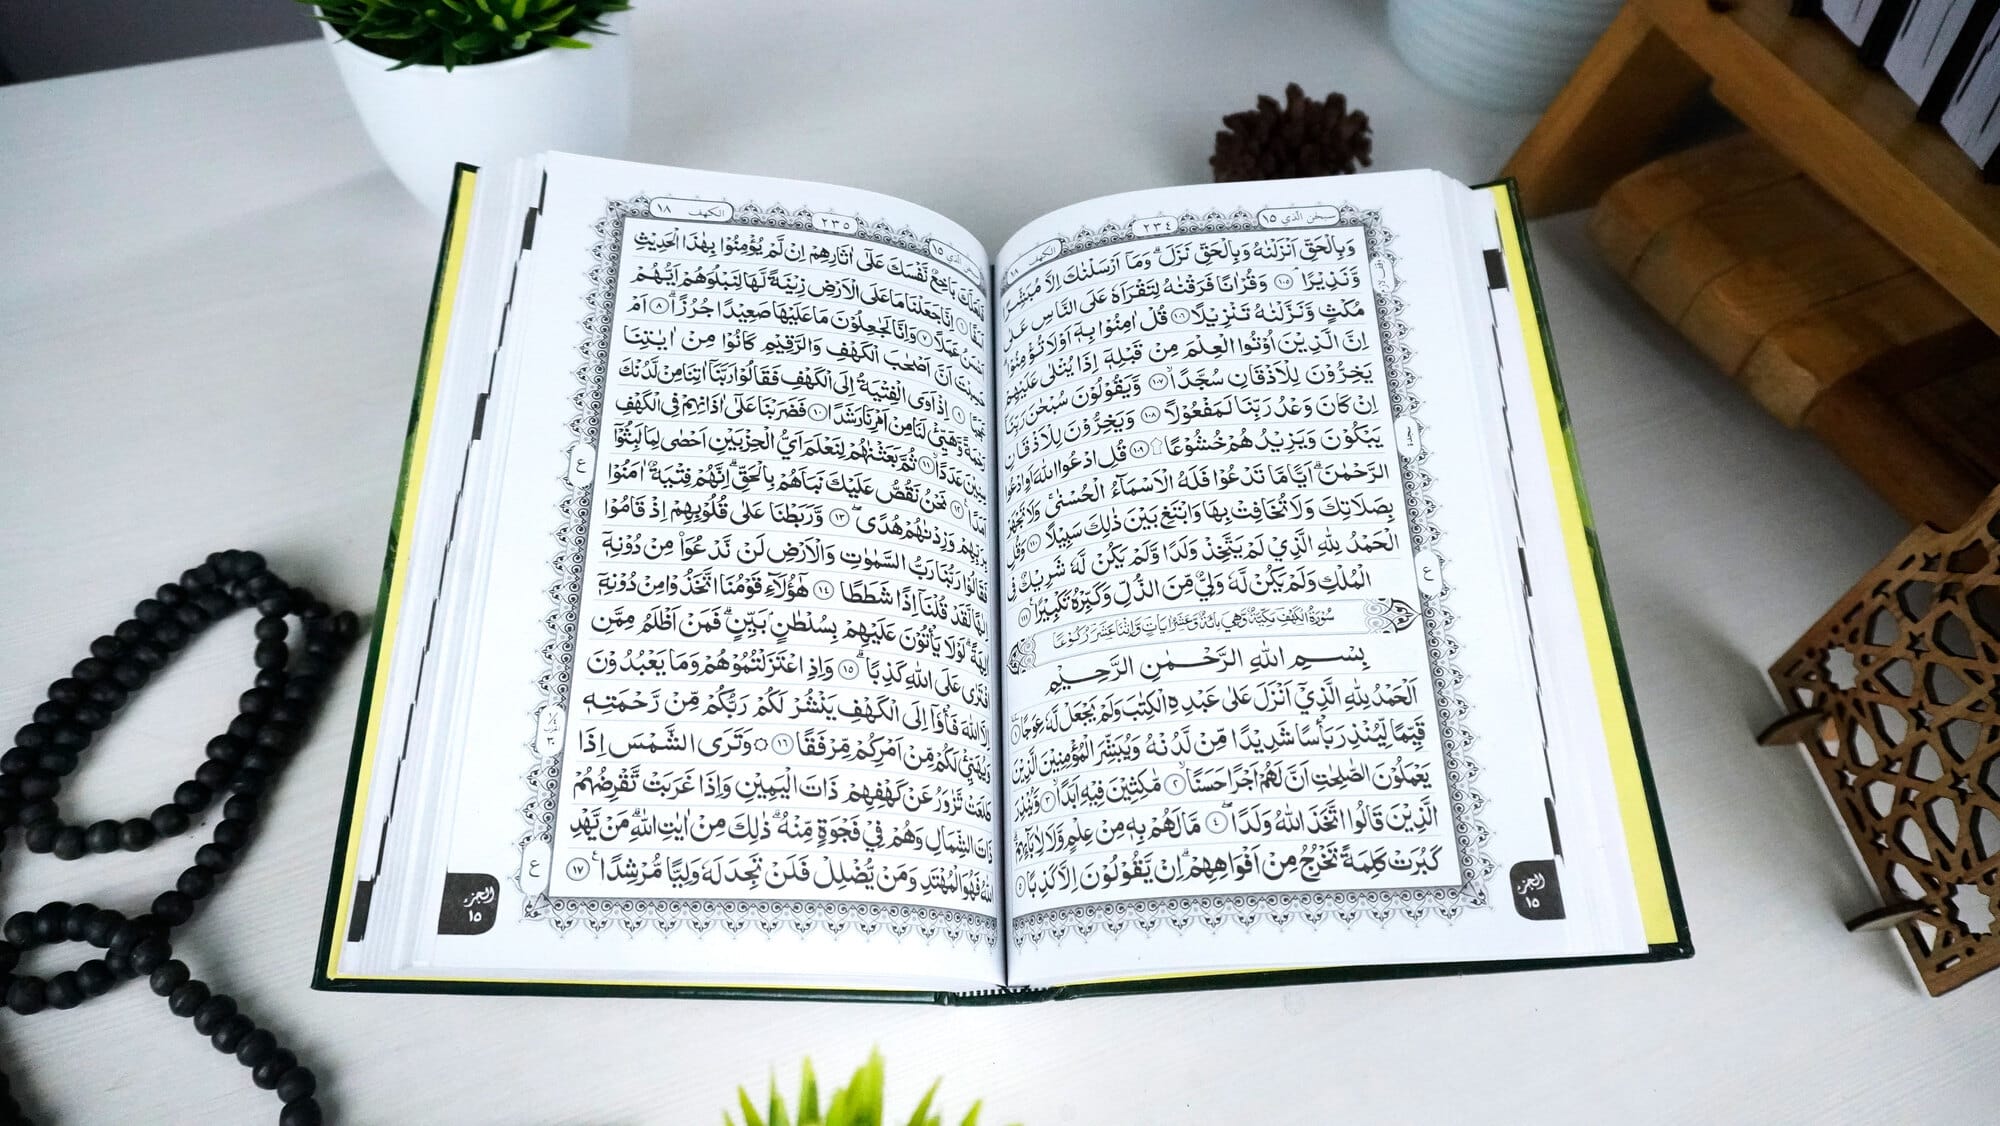 سبحن الذي ١٥
٢٣٤
الكهف ١٨
وَبِالْحَقِّ اَنْزَلْنٰهُ وَبِالْحَقِّ نَزَلَ ؕ وَمَآ اَرْسَلْنٰكَ اِلَّا مُبَشِّرًا
وَّنَذِيْرًا ۘ ١٠٥ وَقُرْاٰنًا فَرَقْنٰهُ لِتَقْرَاَهٗ عَلَى النَّاسِ عَلٰى
مُكْثٍ وَّنَزَّلْنٰهُ تَنْزِيْلًا ١٠٦ قُلْ اٰمِنُوْا بِهٖٓ اَوْ لَا تُؤْمِنُوْا ؕ
اِنَّ الَّذِيْنَ اُوْتُوا الْعِلْمَ مِنْ قَبْلِهٖٓ اِذَا يُتْلٰى عَلَيْهِمْ
يَخِرُّوْنَ لِلْاَذْقَانِ سُجَّدًا ۙ ١٠٧ وَّيَقُوْلُوْنَ سُبْحٰنَ رَبِّنَآ
اِنْ كَانَ وَعْدُ رَبِّنَا لَمَفْعُوْلًا ١٠٨ وَيَخِرُّوْنَ لِلْاَذْقَانِ
يَبْكُوْنَ وَيَزِيْدُهُمْ خُشُوْعًا ۩ ١٠٩ قُلِ ادْعُوا اللّٰهَ اَوِ ادْعُوا
الرَّحْمٰنَ ؕ اَيًّا مَّا تَدْعُوْا فَلَهُ الْاَسْمَآءُ الْحُسْنٰى ۚ وَلَا تَجْهَرْ
بِصَلَاتِكَ وَلَا تُخَافِتْ بِهَا وَابْتَغِ بَيْنَ ذٰلِكَ سَبِيْلًا ١١٠ وَقُلِ
الْحَمْدُ لِلّٰهِ الَّذِيْ لَمْ يَتَّخِذْ وَلَدًا وَّلَمْ يَكُنْ لَّهٗ شَرِيْكٌ فِى
الْمُلْكِ وَلَمْ يَكُنْ لَّهٗ وَلِىٌّ مِّنَ الذُّلِّ وَكَبِّرْهُ تَكْبِيْرًا ١١١
سُوْرَةُ الْكَهْفِ مَكِّيَّةٌ وَّهِيَ مِائَةٌ وَّعَشْرُ اٰيَاتٍ وَّاثْنَا عَشَرَ رُكُوْعًا
بِسْمِ اللّٰهِ الرَّحْمٰنِ الرَّحِيْمِ
اَلْحَمْدُ لِلّٰهِ الَّذِيْٓ اَنْزَلَ عَلٰى عَبْدِهِ الْكِتٰبَ وَلَمْ يَجْعَلْ لَّهٗ عِوَجًا ١
قَيِّمًا لِّيُنْذِرَ بَاْسًا شَدِيْدًا مِّنْ لَّدُنْهُ وَيُبَشِّرَ الْمُؤْمِنِيْنَ الَّذِيْنَ
يَعْمَلُوْنَ الصّٰلِحٰتِ اَنَّ لَهُمْ اَجْرًا حَسَنًا ۙ ٢ مّٰكِثِيْنَ فِيْهِ اَبَدًا ۙ ٣ وَّيُنْذِرَ
الَّذِيْنَ قَالُوا اتَّخَذَ اللّٰهُ وَلَدًا ٤ مَا لَهُمْ بِهٖ مِنْ عِلْمٍ وَّلَا لِاٰبَآئِهِمْ ؕ
كَبُرَتْ كَلِمَةً تَخْرُجُ مِنْ اَفْوَاهِهِمْ ؕ اِنْ يَّقُوْلُوْنَ اِلَّا كَذِبًا ٥
سجدة
ع
الجزء
١٥
سبحن الذي ١٥
٢٣٥
الكهف ١٨
فَلَعَلَّكَ بَاخِعٌ نَّفْسَكَ عَلٰٓى اٰثَارِهِمْ اِنْ لَّمْ يُؤْمِنُوْا بِهٰذَا الْحَدِيْثِ
اَسَفًا ٦ اِنَّا جَعَلْنَا مَا عَلَى الْاَرْضِ زِيْنَةً لَّهَا لِنَبْلُوَهُمْ اَيُّهُمْ
اَحْسَنُ عَمَلًا ٧ وَاِنَّا لَجٰعِلُوْنَ مَا عَلَيْهَا صَعِيْدًا جُرُزًا ؕ ٨ اَمْ
حَسِبْتَ اَنَّ اَصْحٰبَ الْكَهْفِ وَالرَّقِيْمِ كَانُوْا مِنْ اٰيٰتِنَا
عَجَبًا ٩ اِذْ اَوَى الْفِتْيَةُ اِلَى الْكَهْفِ فَقَالُوْا رَبَّنَآ اٰتِنَا مِنْ لَّدُنْكَ
رَحْمَةً وَّهَيِّئْ لَنَا مِنْ اَمْرِنَا رَشَدًا ١٠ فَضَرَبْنَا عَلٰٓى اٰذَانِهِمْ فِى الْكَهْفِ
سِنِيْنَ عَدَدًا ۙ ١١ ثُمَّ بَعَثْنٰهُمْ لِنَعْلَمَ اَىُّ الْحِزْبَيْنِ اَحْصٰى لِمَا لَبِثُوْٓا
اَمَدًا ١٢ نَحْنُ نَقُصُّ عَلَيْكَ نَبَاَهُمْ بِالْحَقِّ ؕ اِنَّهُمْ فِتْيَةٌ اٰمَنُوْا
بِرَبِّهِمْ وَزِدْنٰهُمْ هُدًى ١٣ وَّرَبَطْنَا عَلٰى قُلُوْبِهِمْ اِذْ قَامُوْا
فَقَالُوْا رَبُّنَا رَبُّ السَّمٰوٰتِ وَالْاَرْضِ لَنْ نَّدْعُوَا۟ مِنْ دُوْنِهٖٓ
اِلٰهًا لَّقَدْ قُلْنَآ اِذًا شَطَطًا ١٤ هٰٓؤُلَآءِ قَوْمُنَا اتَّخَذُوْا مِنْ دُوْنِهٖٓ
اٰلِهَةً ؕ لَوْلَا يَاْتُوْنَ عَلَيْهِمْ بِسُلْطٰنٍۭ بَيِّنٍ ؕ فَمَنْ اَظْلَمُ مِمَّنِ
افْتَرٰى عَلَى اللّٰهِ كَذِبًا ؕ ١٥ وَاِذِ اعْتَزَلْتُمُوْهُمْ وَمَا يَعْبُدُوْنَ
اِلَّا اللّٰهَ فَاْوٗٓا اِلَى الْكَهْفِ يَنْشُرْ لَكُمْ رَبُّكُمْ مِّنْ رَّحْمَتِهٖ
وَيُهَيِّئْ لَكُمْ مِّنْ اَمْرِكُمْ مِّرْفَقًا ١٦ وَتَرَى الشَّمْسَ اِذَا
طَلَعَتْ تَّزٰوَرُ عَنْ كَهْفِهِمْ ذَاتَ الْيَمِيْنِ وَاِذَا غَرَبَتْ تَّقْرِضُهُمْ
ذَاتَ الشِّمَالِ وَهُمْ فِيْ فَجْوَةٍ مِّنْهُ ؕ ذٰلِكَ مِنْ اٰيٰتِ اللّٰهِ ؕ مَنْ يَّهْدِ
اللّٰهُ فَهُوَ الْمُهْتَدِ وَمَنْ يُّضْلِلْ فَلَنْ تَجِدَ لَهٗ وَلِيًّا مُّرْشِدًا ١٧
ع
ع
الجزء
١٥